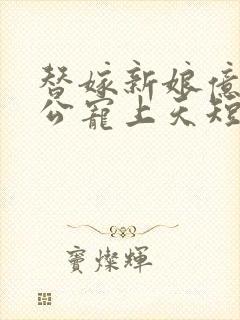 替嫁新娘億
公寵上天短
寶燦輝